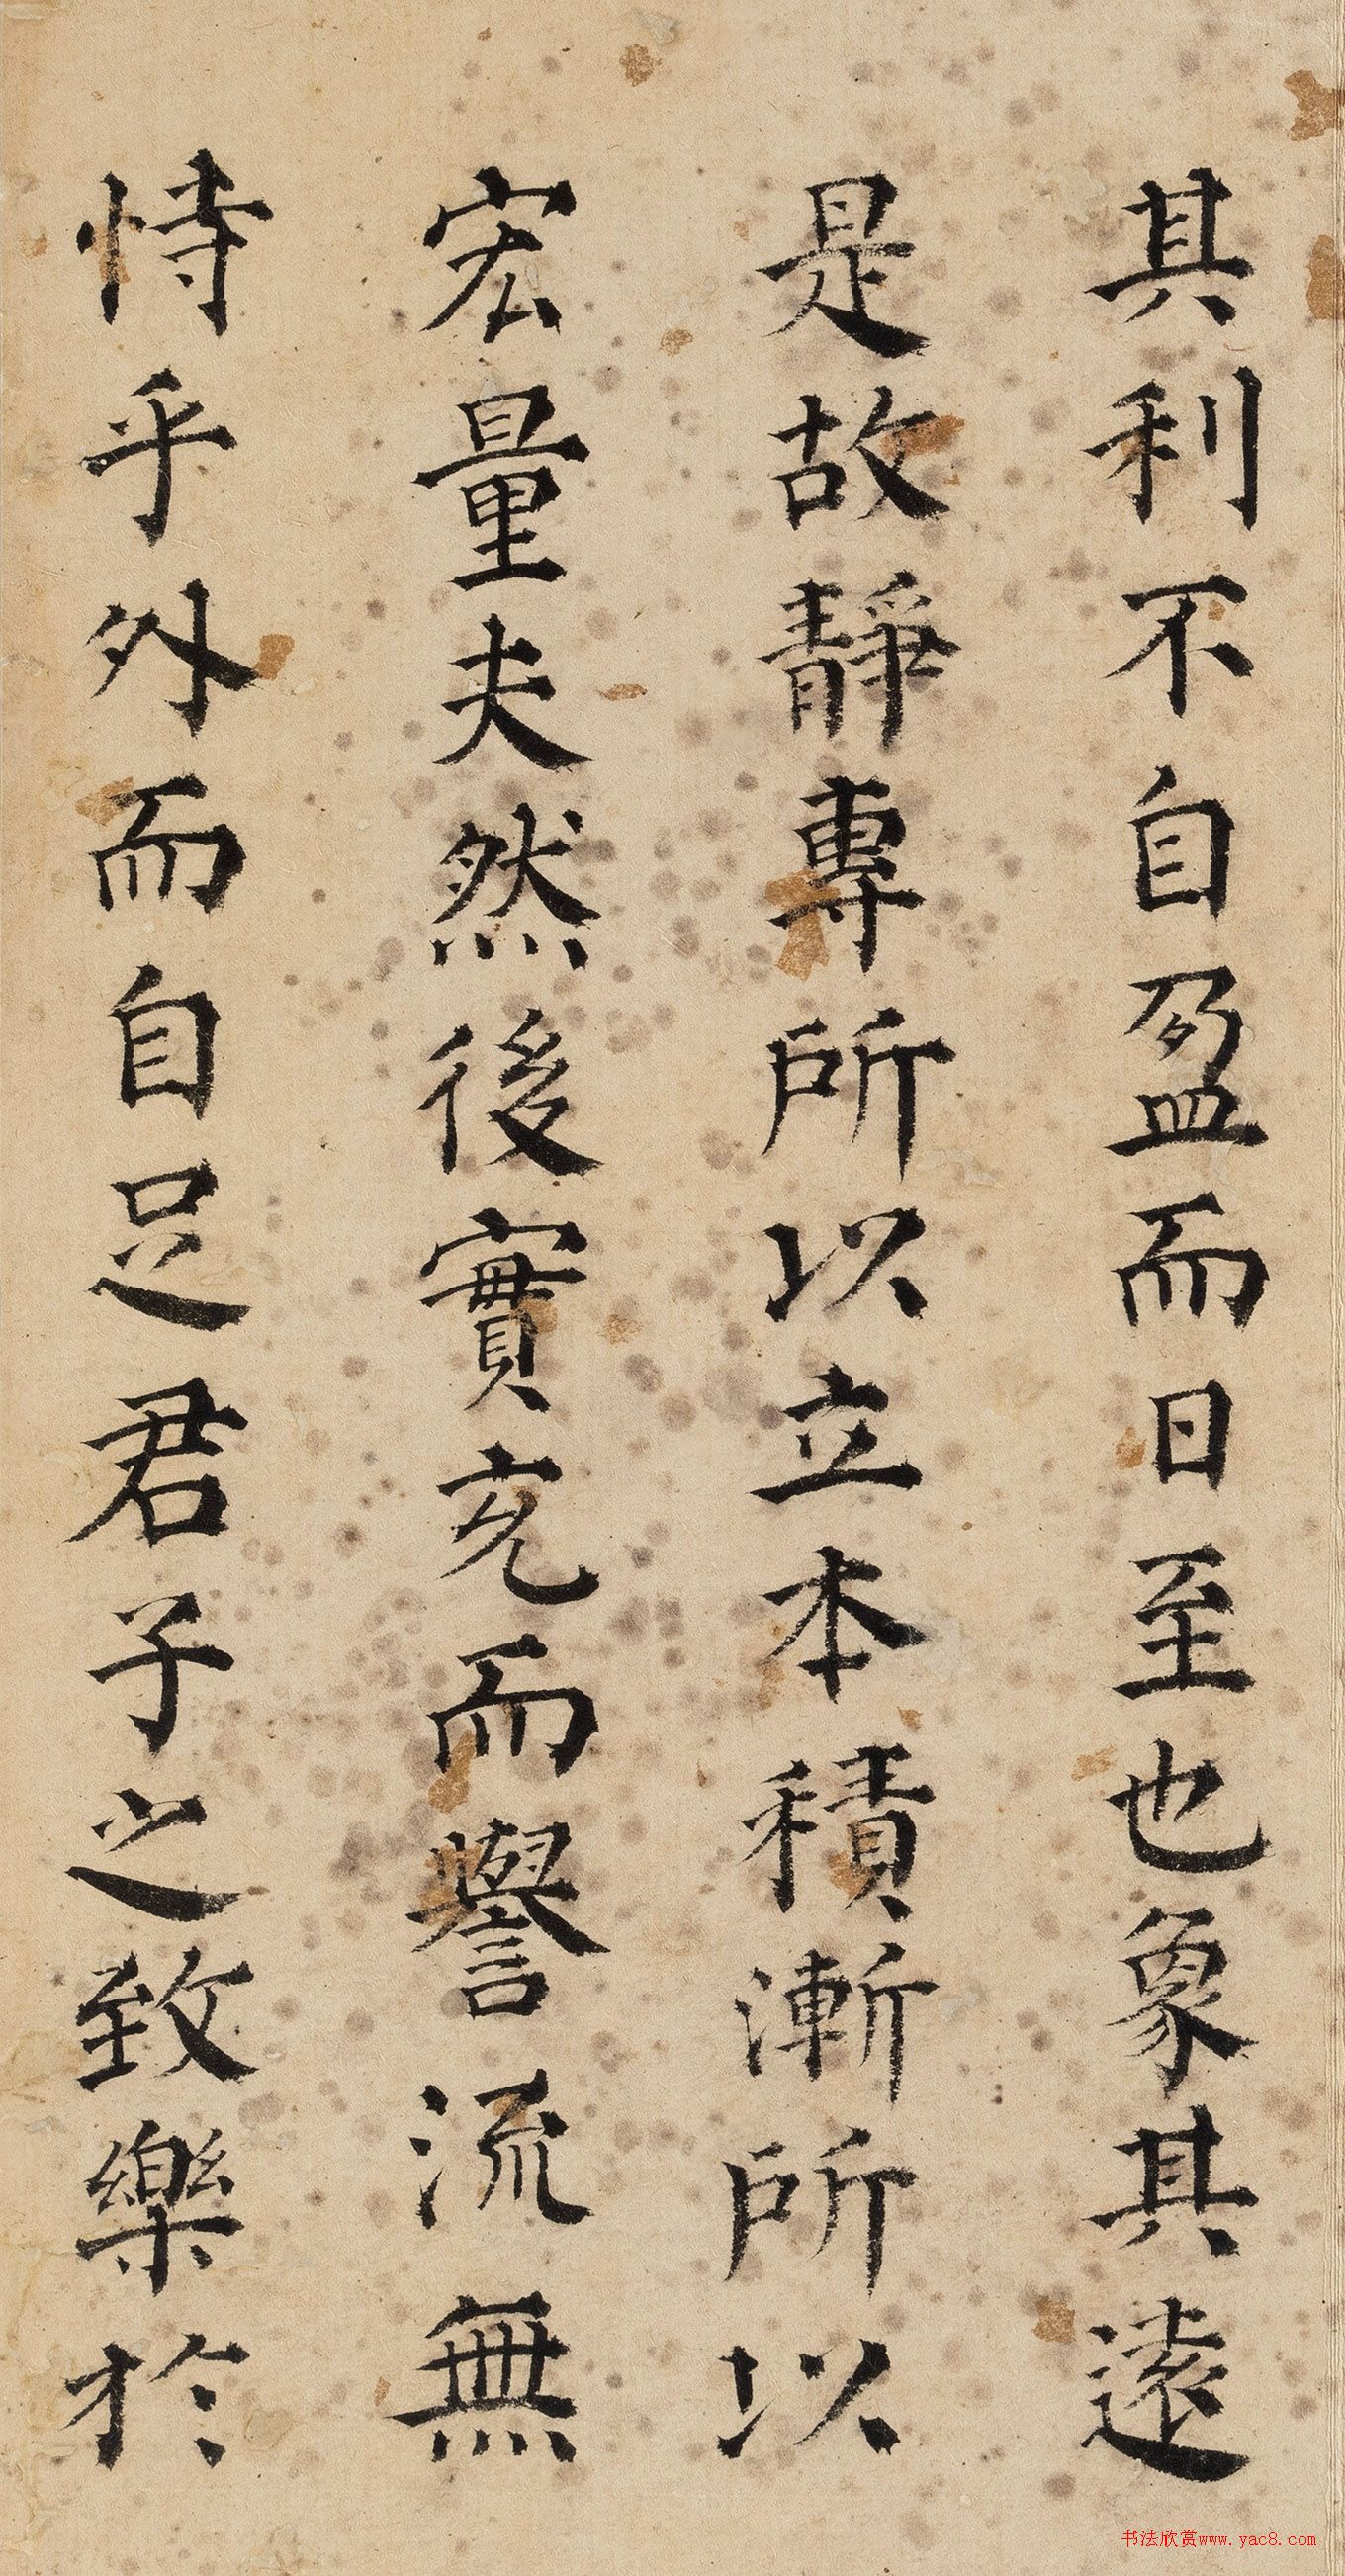 其利不自盈而日至也象其遠
是故靜專所以立本積漸所以
宏量夫然後實充而譽流無
恃乎外而自足君子之致樂於
书法欣赏www.yac8.com